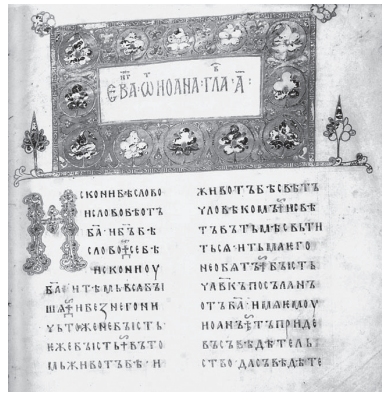 ЕВА҃ Ѿ ИОАНА · ГЛА҃ · А҃ :
ИСКОНИБѢСЛОВО
ИСЛОВОБѢОТЪ
БА҃·ИБЪ҃БѢ
СЛОВО☩СЕБѢ
ИСКОНИОУ
БА҃ИТѢМЬВЬСѦБЫ
ШѦ☩ИБЕЗНЕГОНИ
ЧЬТОЖЕНЕБЫСТЬ·
ИЖЕБЫСТЬ☩ВЪТО
МЬЖИВОТЪБѢ·И
ЖИВОТЪБѢСВѢТЪ
ЧЛОВѢКОМЪ☩ИСВѢ
ТЪВЪТЬМѢСВЬТИ
ТЬСѦ·ИТЬМАѤГО
НЕОБѦТЪ☩БЫСТЬ
ЧЛВ҃КЪПОСЪЛАНЪ
ОТЪБА҃·ИМѦѤМОУ
ИОАНЪ☩ТЪПРИДЕ
ВЪСЪВѢДѢТЕЛЬ
СТВО·ДАСЪВѢДѢТЕ